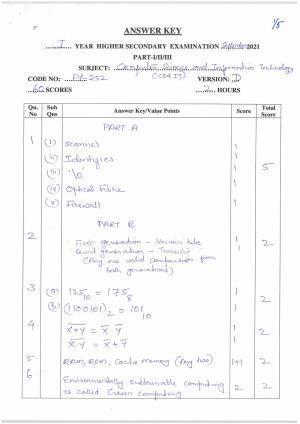 1/5
ANSWER KEY
I YEAR HIGHER SECONDARY EXAMINATION 2021
PART-I/II/III
SUBJECT: Computer Science and Information Technology
CODE NO: FY-252 VERSION: D
60 SCORES 2 HOURS
Qn. No Sub Qns Answer Key/Value Points Score Total Score
PART A
1 (i) scanner 1
(ii) Identifiers 1
(iii) '\0' 1 5
(iv) Optical Fibre 1
(v) Firewall 1
PART B
2 First generation - Vacuum tube 1
Second generation - Transistor 1 2
(Any one valid comparison from
both generations)
3 (a) 125₁₀ = 175₈ 1
(b) (1100101)₂ = 101₁₀ 1 2
4 x+y = x̄ ȳ 1
x.y = x̄ + ȳ 1 2
5 RAM, ROM, Cache memory (Any two) 1+1 2
6 Environmentally sustainable computing
is called Green computing 2 2